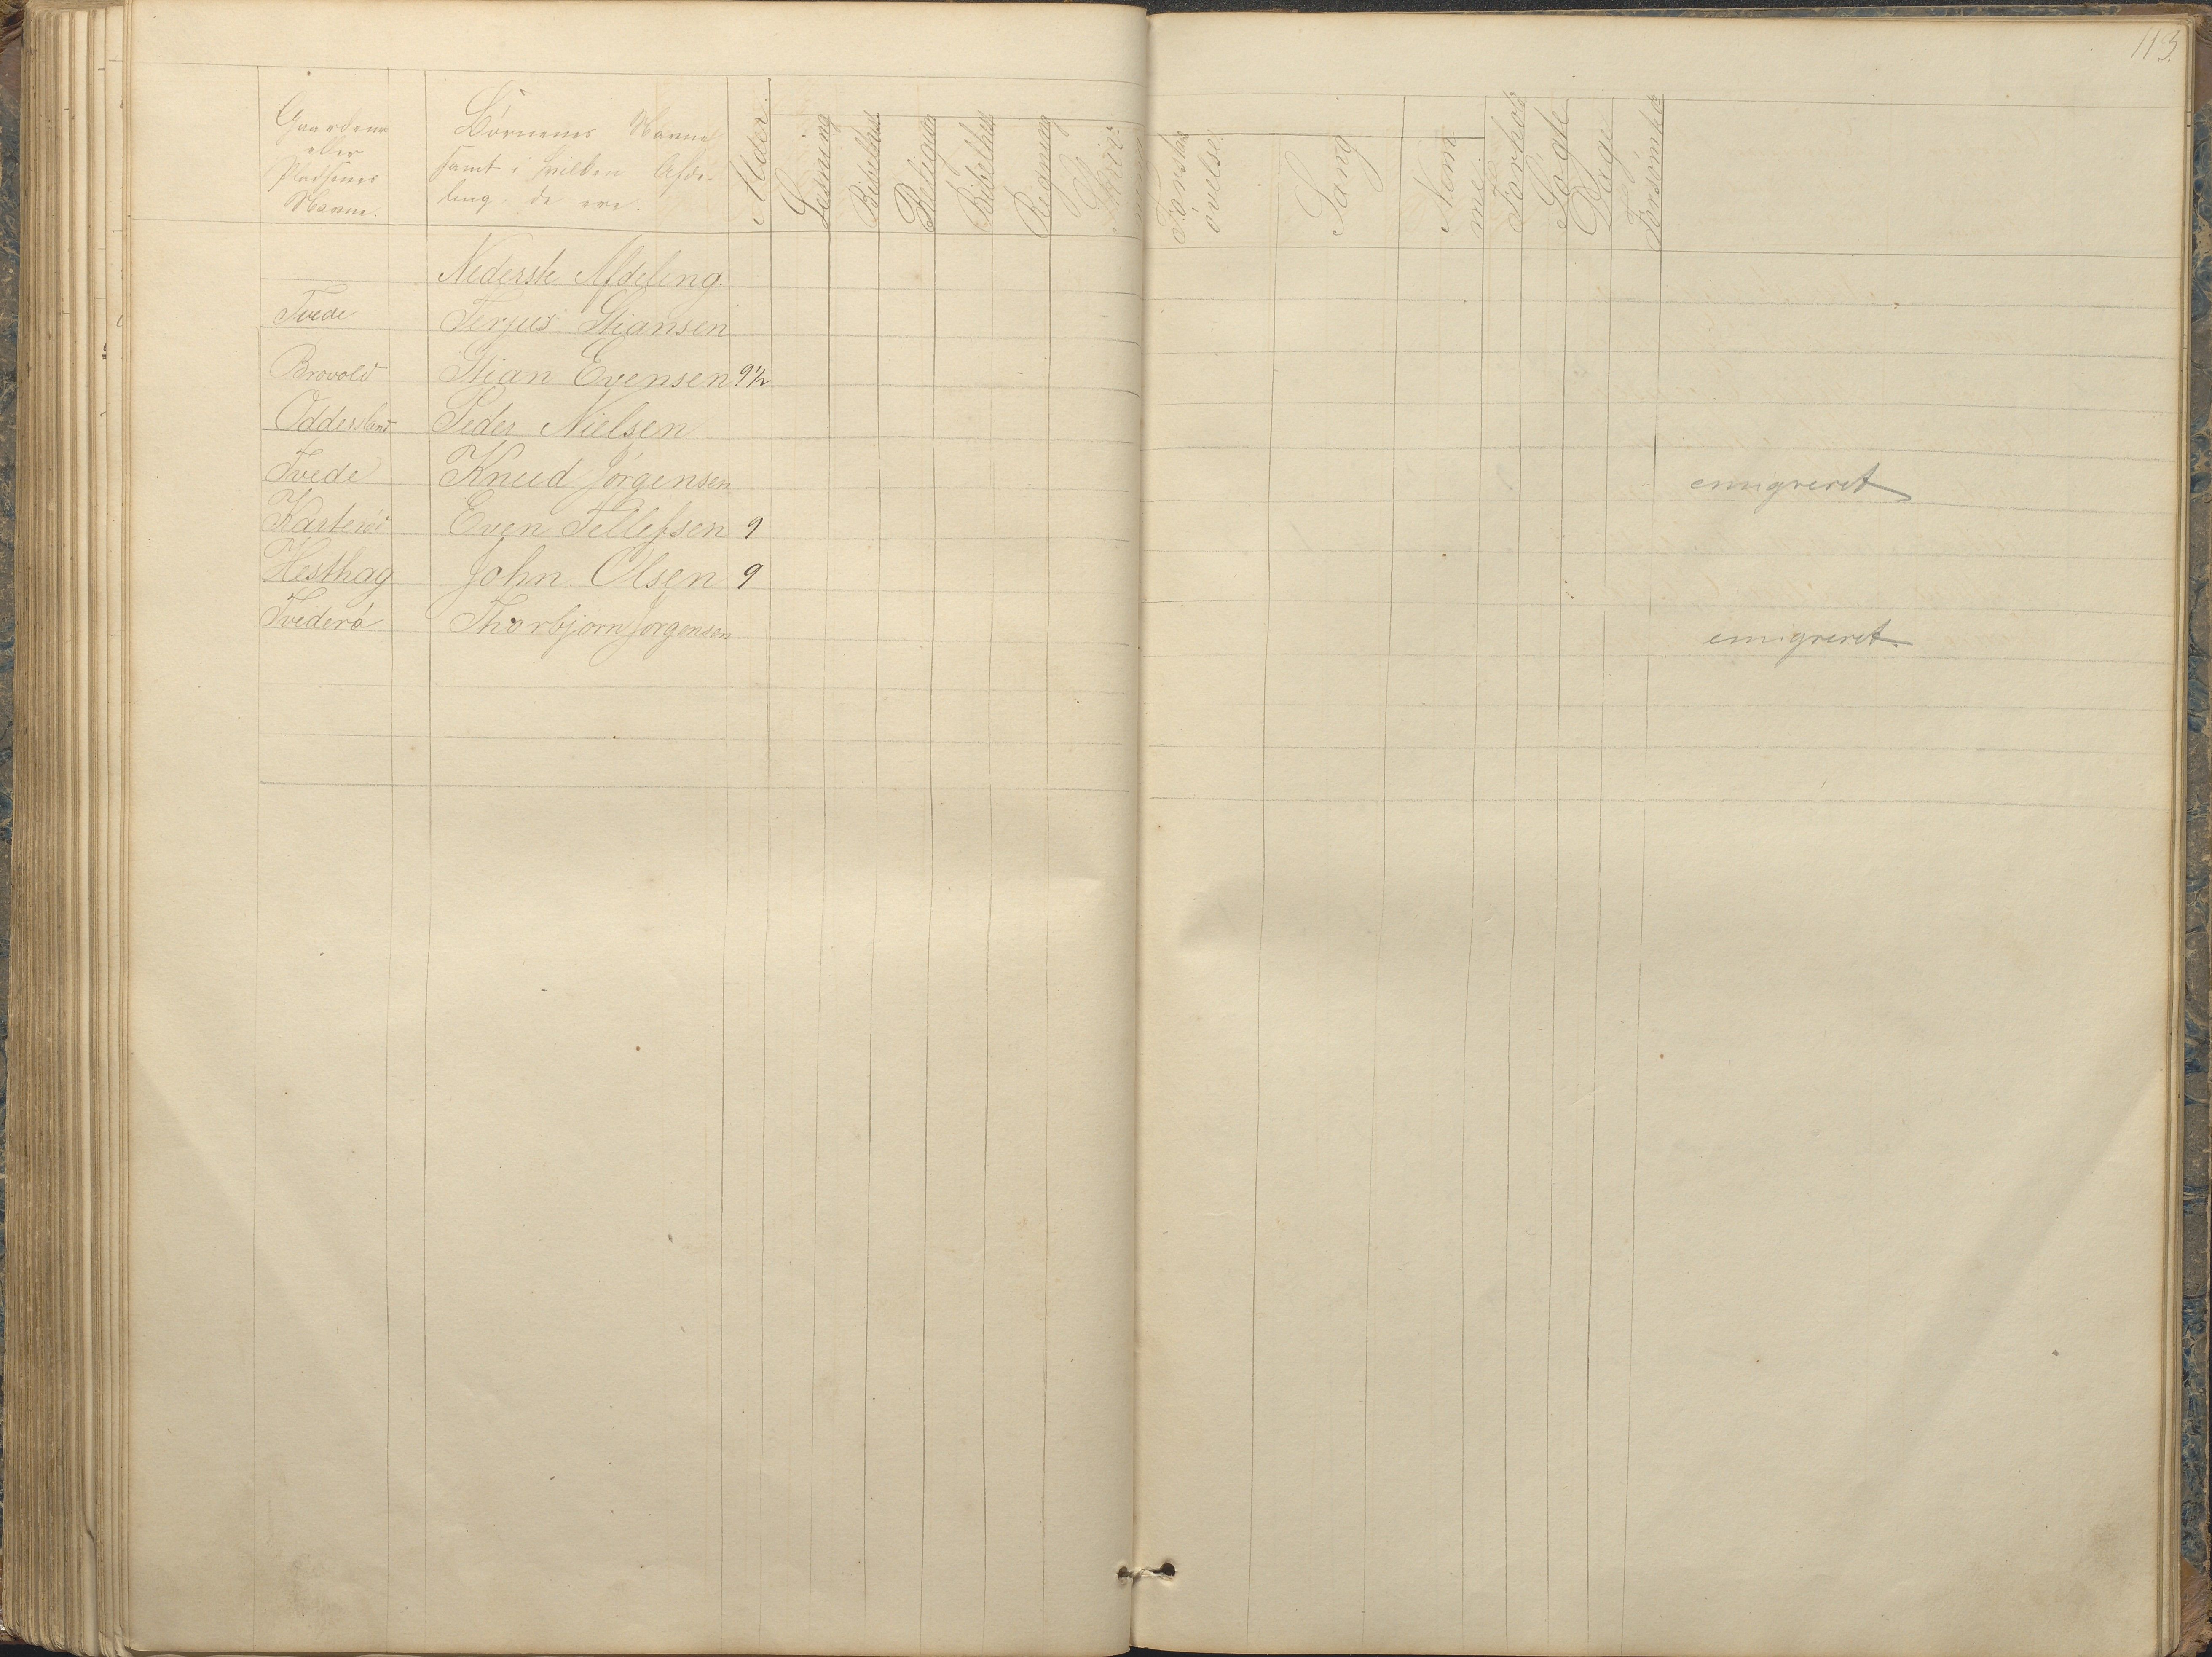 113.
Gaardens
eller
Pladsenes
Navne.
Börnenes Navne
samt i hvilken Afde-
ling de ere.
Alder.
Læsning
Bibelhist
Religion
Bibelhist
Regning
Skriv-
Forstands
övelse.
Sang
Nom
mei
Forhold
Sögte
Dage
Forsömte
Nederste Afdeling.
Tvede Terjus Stiansen
Brovold Stian Evensen 9½
Oddersland Peder Nielsen
Tvede Knud Jörgensen emigreret
Karteröd Even Tellefsen 9
Hesthag John Olsen 9
Tvederö Thorbjörn Jörgensen emigreret.